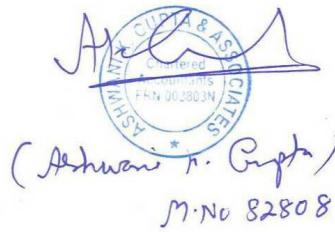 ASHWANI K. GUPTA & ASSOCIATES
Chartered
Accountants
FRN 002803N
(Ashwani K. Gupta)
M.No 82808